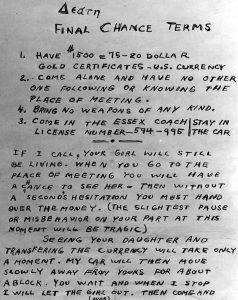 Death
FINAL CHANCE TERMS
1. HAVE $1500 = 75-20 DOLLAR
GOLD CERTIFICATES - U.S. CURRENCY
2. COME ALONE AND HAVE NO OTHER
ONE FOLLOWING OR KNOWING THE
PLACE OF MEETING.
4. BRING NO WEAPONS OF ANY KIND.
3. COME IN THE ESSEX COACH STAY IN
LICENSE NUMBER-594-995 THE CAR
IF I CALL, YOUR GIRL WILL STILL
BE LIVING. WHEN YOU GO TO THE
PLACE OF MEETING YOU WILL HAVE
A CANCE TO SEE HER - THEN WITHOUT
A SECONDS HESITATION YOU MUST HAND
OVER THE MONEY. (THE SLIGHTEST PAUSE
OR MISBEHAVIOR ON YOUR PART AT THIS
MOMENT WILL BE TRAGIC)
SEEING YOUR DAUGHTER AND
TRANSFERING THE CURRENCY WILL TAKE ONLY
A MOMENT. MY CAR WILL THEN MOVE
SLOWLY AWAY FROM YOURS FOR ABOUT
A BLOCK. YOU WAIT AND WHEN I STOP
I WILL LET THE GIRL OUT. THEN COME AND